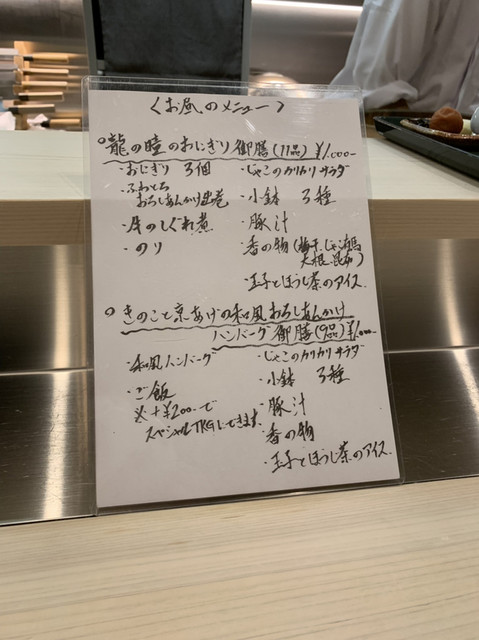 〈お昼のメニュー〉
○龍の瞳のおにぎり御膳(11品)¥1,000-
・おにぎり 3個
・ふわとろ
おろしあんかけ出巻
・牛のしぐれ煮
・のり
・じゃこのカリカリサラダ
・小鉢 3種
・豚汁
・香の物(梅干、じゃこ
大根、昆布)
・玉子とほうじ茶のアイス
○きのこと京あげの和風おろしあんかけ
ハンバーグ御膳(9品)¥1,000-
・和風ハンバーグ
・ご飯
※+¥200-で
スペシャルTKGにできます
・じゃこのカリカリサラダ
・小鉢 3種
・豚汁
・香の物
・玉子とほうじ茶のアイス